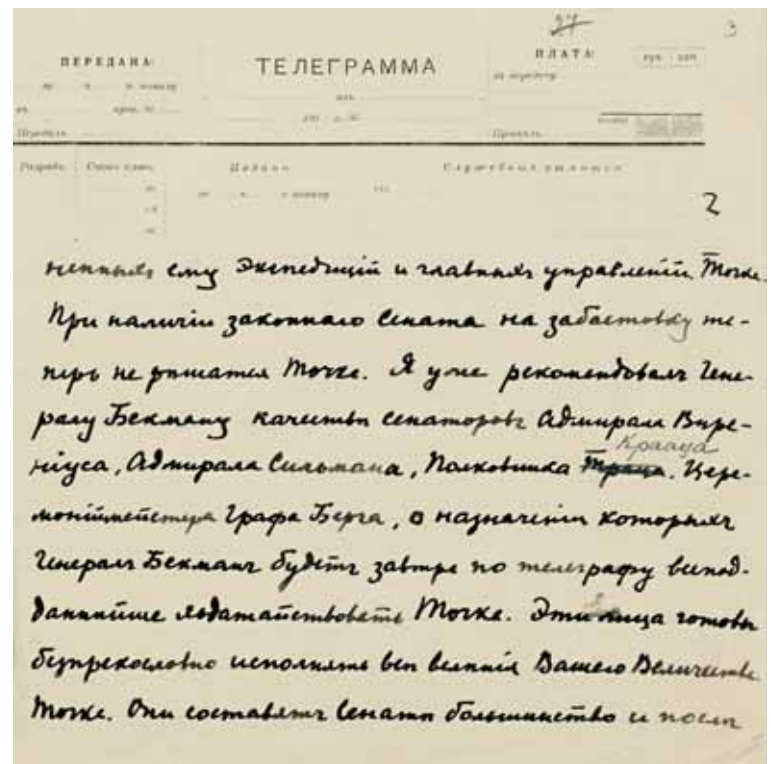 27
3
ПЕРЕДАНА:
ТЕЛЕГРАММА
ПЛАТА:
руб. коп.
за передачу
Разрядъ. Счетъ словъ. Подана Служебныя отмѣтки
2
ненныхъ ему Экспедицій и главныхъ управленій Точка.
При наличіи законнаго Сената на забастовку те-
перь не рѣшатся Точка. Я уже рекомендовалъ Гене-
ралу Бекману качествѣ сенаторовъ Адмирала Вире-
ніуса, Адмирала Сильмана, Полковника Крааца. Цере-
моніймейстера Графа Берга, о назначеніи которыхъ
Генералъ Бекманъ будетъ завтра по телеграфу всепод-
даннѣйше ходатайствовать Точка. Эти лица готовы
безпрекословно исполнять всѣ велѣнія Вашего Величества
Точка. Они составятъ Сенатѣ большинство и послѣ